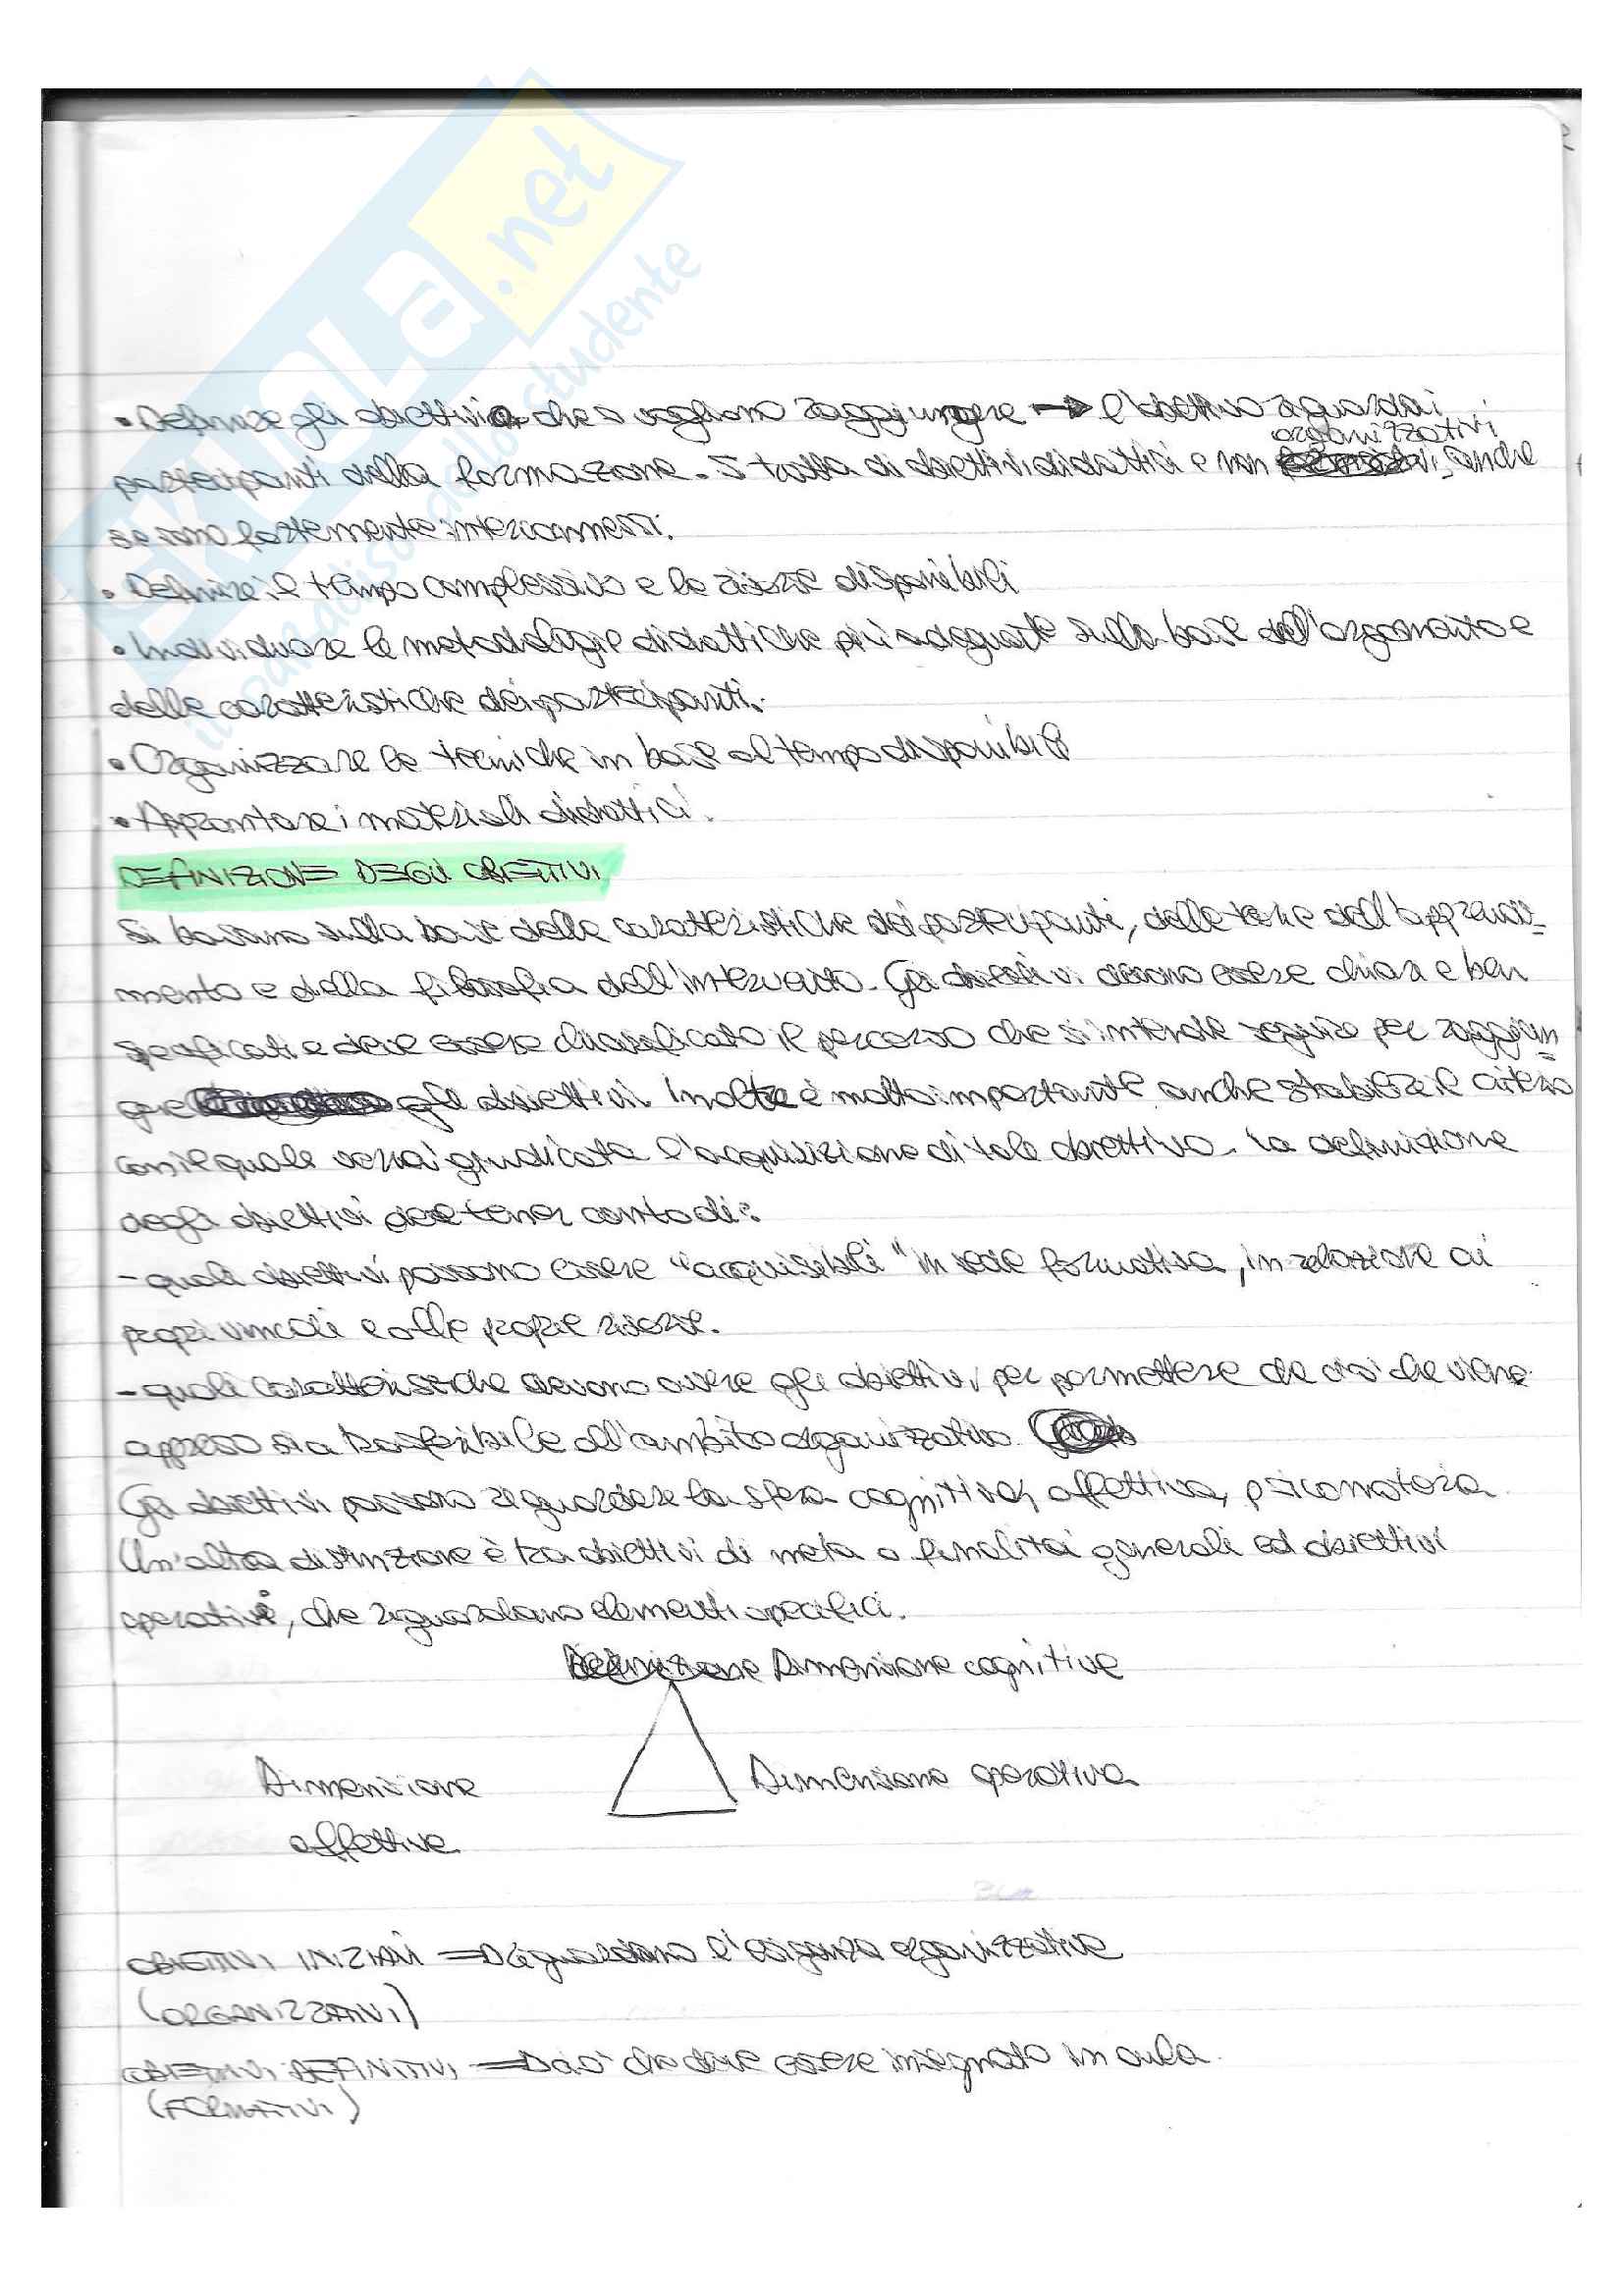 SKUOLA.net
il paradiso dello studente
• Definire gli obiettivi che si vogliono raggiungere → l'obiettivo riguarda i
organizzativi
partecipanti della formazione. Si tratta di obiettivi didattici e non , anche
se sono fortemente interconnessi.
• Definire il tempo complessivo e le risorse disponibili
• Individuare le metodologie didattiche più adeguate sulla base dell'argomento e
delle caratteristiche dei partecipanti.
• Organizzare le tecniche in base al tempo disponibile
• Approntare i materiali didattici.
DEFINIZIONE DEGLI OBIETTIVI
Si basano sulla base delle caratteristiche dei partecipanti, delle teorie dell'apprendi=
mento e della filosofia dell'intervento. Gli obiettivi devono essere chiari e ben
specificati e deve essere chiarificato il percorso che si intende seguire per raggiun=
gere gli obiettivi. Inoltre è molto importante anche stabilire il criterio
con il quale verrà giudicata l'acquisizione di tale obiettivo. La definizione
degli obiettivi deve tener conto di:
- quali obiettivi possono essere "acquisibili" in sede formativa, in relazione ai
propri vincoli e alle proprie risorse.
- quali caratteristiche devono avere gli obiettivi per permettere che ciò che viene
appreso sia trasferibile all'ambito organizzativo.
Gli obiettivi possono riguardare la sfera cognitiva, affettiva, psicomotoria.
Un'altra distinzione è tra obiettivi di meta o finalità generali ed obiettivi
operativi, che riguardano elementi specifici.
Definizione Dimensione cognitive
Dimensione Dimensione operativa
affettive
OBIETTIVI INIZIALI ⇒ Riguardano l'esigenza organizzativa
(ORGANIZZATIVI)
OBIETTIVI DEFINITIVI ⇒ ciò che deve essere insegnato in aula.
(FORMATIVI)